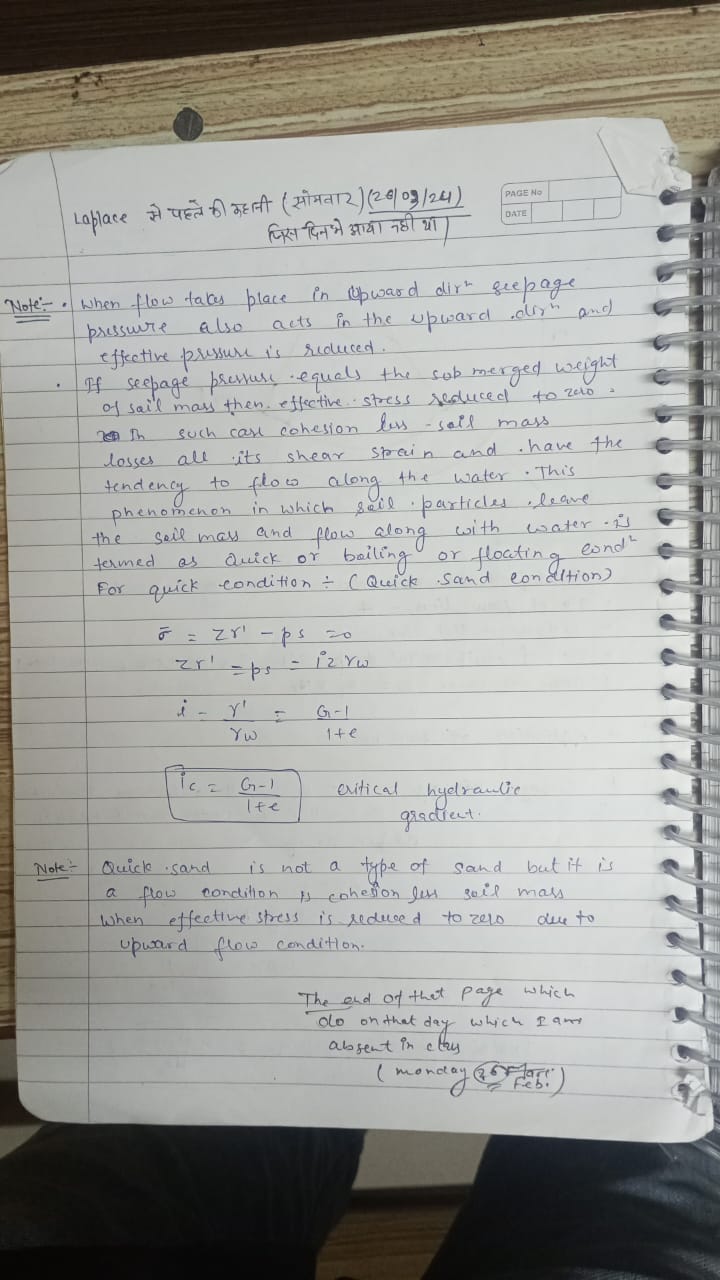 Laplace से पहले की कहानी (सोमवार) (26/02/24)
जिस दिन मैं आया नही था)
PAGE No
DATE
Note:- • When flow takes place in Upward dirn seepage
pressure also acts in the upward dirn and
effective pressure is reduced.
• If seepage pressure equals the sub merged weight
of sail mass then effective stress reduced to zero.
In such case cohesion less soil mass
losses all its shear strain and have the
tendency to flow along the water. This
phenomenon in which soil particles leave
the soil mass and flow along with water is
termed as Quick or boiling or floating condn
For quick condition ÷ (Quick Sand condition)
σ̄ = zr' - ps = 0
zr' = ps = izrw
i = r'/rw = G-1/1+e
ic = G-1/1+e critical hydraulic
gradient.
Note:- Quick sand is not a type of sand but it is
a flow condition is cohesion less soil mass
when effective stress is reduced to zero due to
upward flow condition.
The end of that page which
do on that day which I am
absent in class
(monday 26 Feb.)